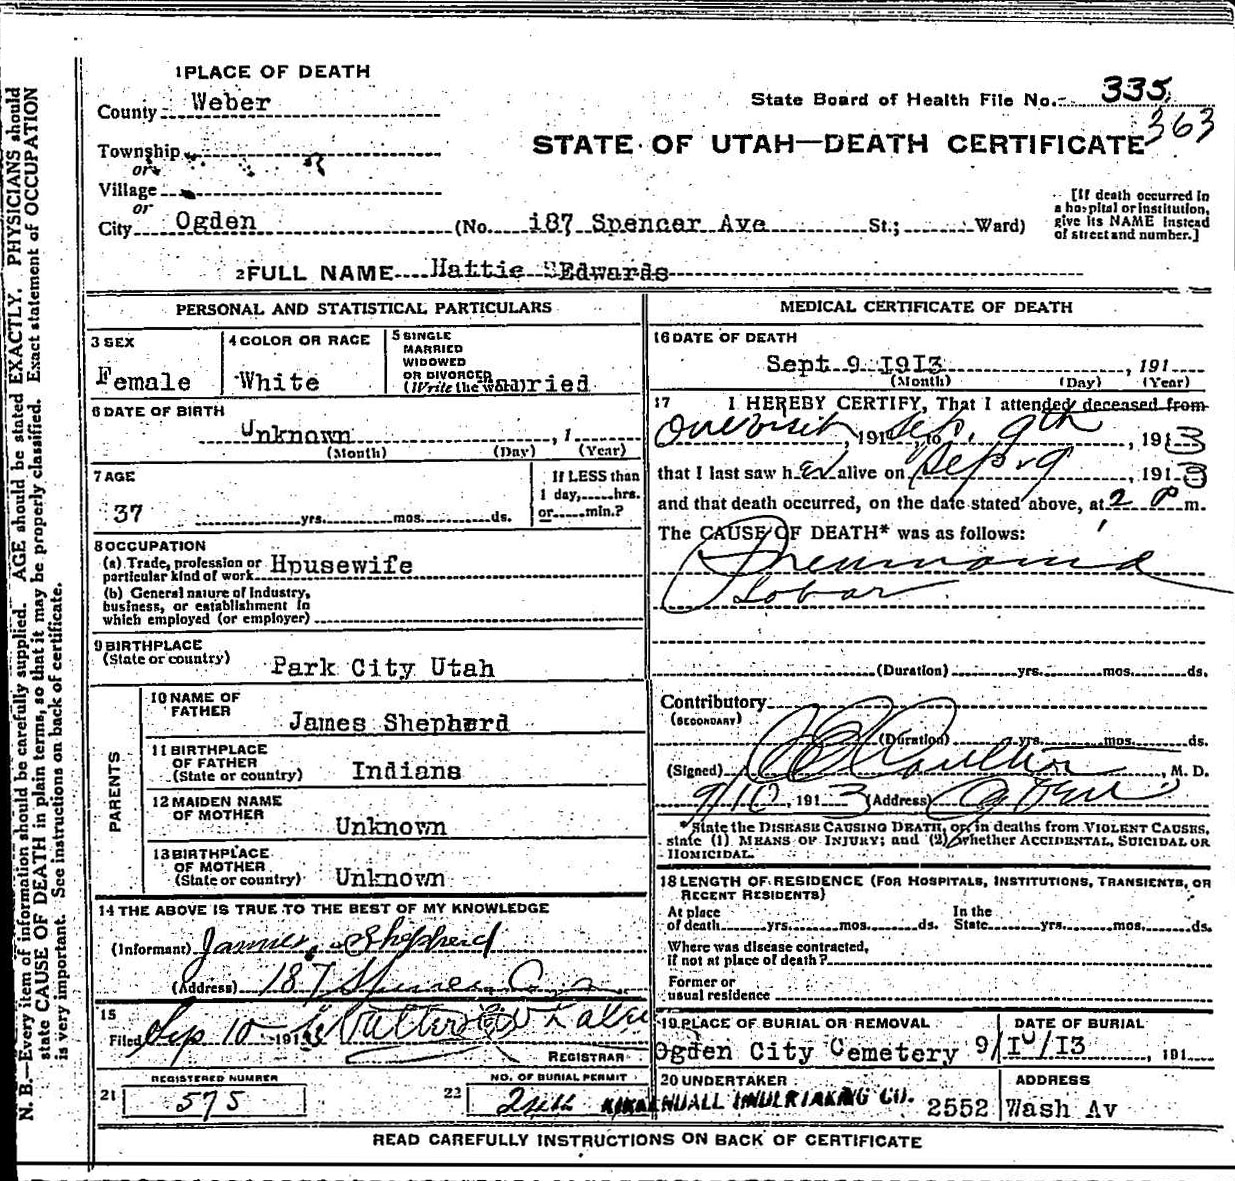 1 PLACE OF DEATH
County Weber
State Board of Health File No. 335
363
STATE OF UTAH—DEATH CERTIFICATE
Township
or
Village
or
City Ogden (No. 187 Spencer Ave St.; Ward)
[If death occurred in
a hospital or institution,
give its NAME instead
of street and number.]
2 FULL NAME Hattie Edwards
PERSONAL AND STATISTICAL PARTICULARS
3 SEX
Female
4 COLOR OR RACE
White
5 SINGLE
MARRIED
WIDOWED
OR DIVORCED
(Write the word) Married
6 DATE OF BIRTH
Unknown , 1
(Month) (Day) (Year)
7 AGE
37 yrs. mos. ds.
If LESS than
1 day, hrs.
or min.?
8 OCCUPATION
(a) Trade, profession or
particular kind of work Housewife
(b) General nature of Industry,
business, or establishment in
which employed (or employer)
9 BIRTHPLACE
(State or country) Park City Utah
PARENTS
10 NAME OF
FATHER James Shepherd
11 BIRTHPLACE
OF FATHER
(State or country) Indiana
12 MAIDEN NAME
OF MOTHER Unknown
13 BIRTHPLACE
OF MOTHER
(State or country) Unknown
14 THE ABOVE IS TRUE TO THE BEST OF MY KNOWLEDGE
(Informant) James Shepherd
(Address) 187
15
Filed Sep 10 191
REGISTRAR
REGISTERED NUMBER
21 575
NO. OF BURIAL PERMIT
22
MEDICAL CERTIFICATE OF DEATH
16 DATE OF DEATH
Sept 9 1913 , 191
(Month) (Day) (Year)
17 I HEREBY CERTIFY, That I attended deceased from
One visit, 191 Sep. to 9th, 1913
that I last saw her alive on Sep. 9, 1913
and that death occurred, on the date stated above, at 2 P m.
The CAUSE OF DEATH* was as follows:
Pneumonia
Lobar
(Duration) yrs. mos. ds.
Contributory
(SECONDARY)
(Duration) yrs. mos. ds.
(Signed) , M. D.
9/10, 1913 (Address) Ogden
* State the DISEASE CAUSING DEATH, or, in deaths from VIOLENT CAUSES,
state (1) MEANS OF INJURY; and (2) whether ACCIDENTAL, SUICIDAL OR
HOMICIDAL.
18 LENGTH OF RESIDENCE (FOR HOSPITALS, INSTITUTIONS, TRANSIENTS, OR
RECENT RESIDENTS)
At place
of death yrs. mos. ds.
In the
State yrs. mos. ds.
Where was disease contracted,
if not at place of death?
Former or
usual residence
19 PLACE OF BURIAL OR REMOVAL
Ogden City Cemetery
DATE OF BURIAL
9/10/13 , 191
20 UNDERTAKER
KIRKENDALL UNDERTAKING CO. 2552
ADDRESS
Wash Av
READ CAREFULLY INSTRUCTIONS ON BACK OF CERTIFICATE
N. B.—Every item of information should be carefully supplied. AGE should be stated EXACTLY. PHYSICIANS should
state CAUSE OF DEATH in plain terms, so that it may be properly classified. Exact statement of OCCUPATION
is very important. See instructions on back of certificate.